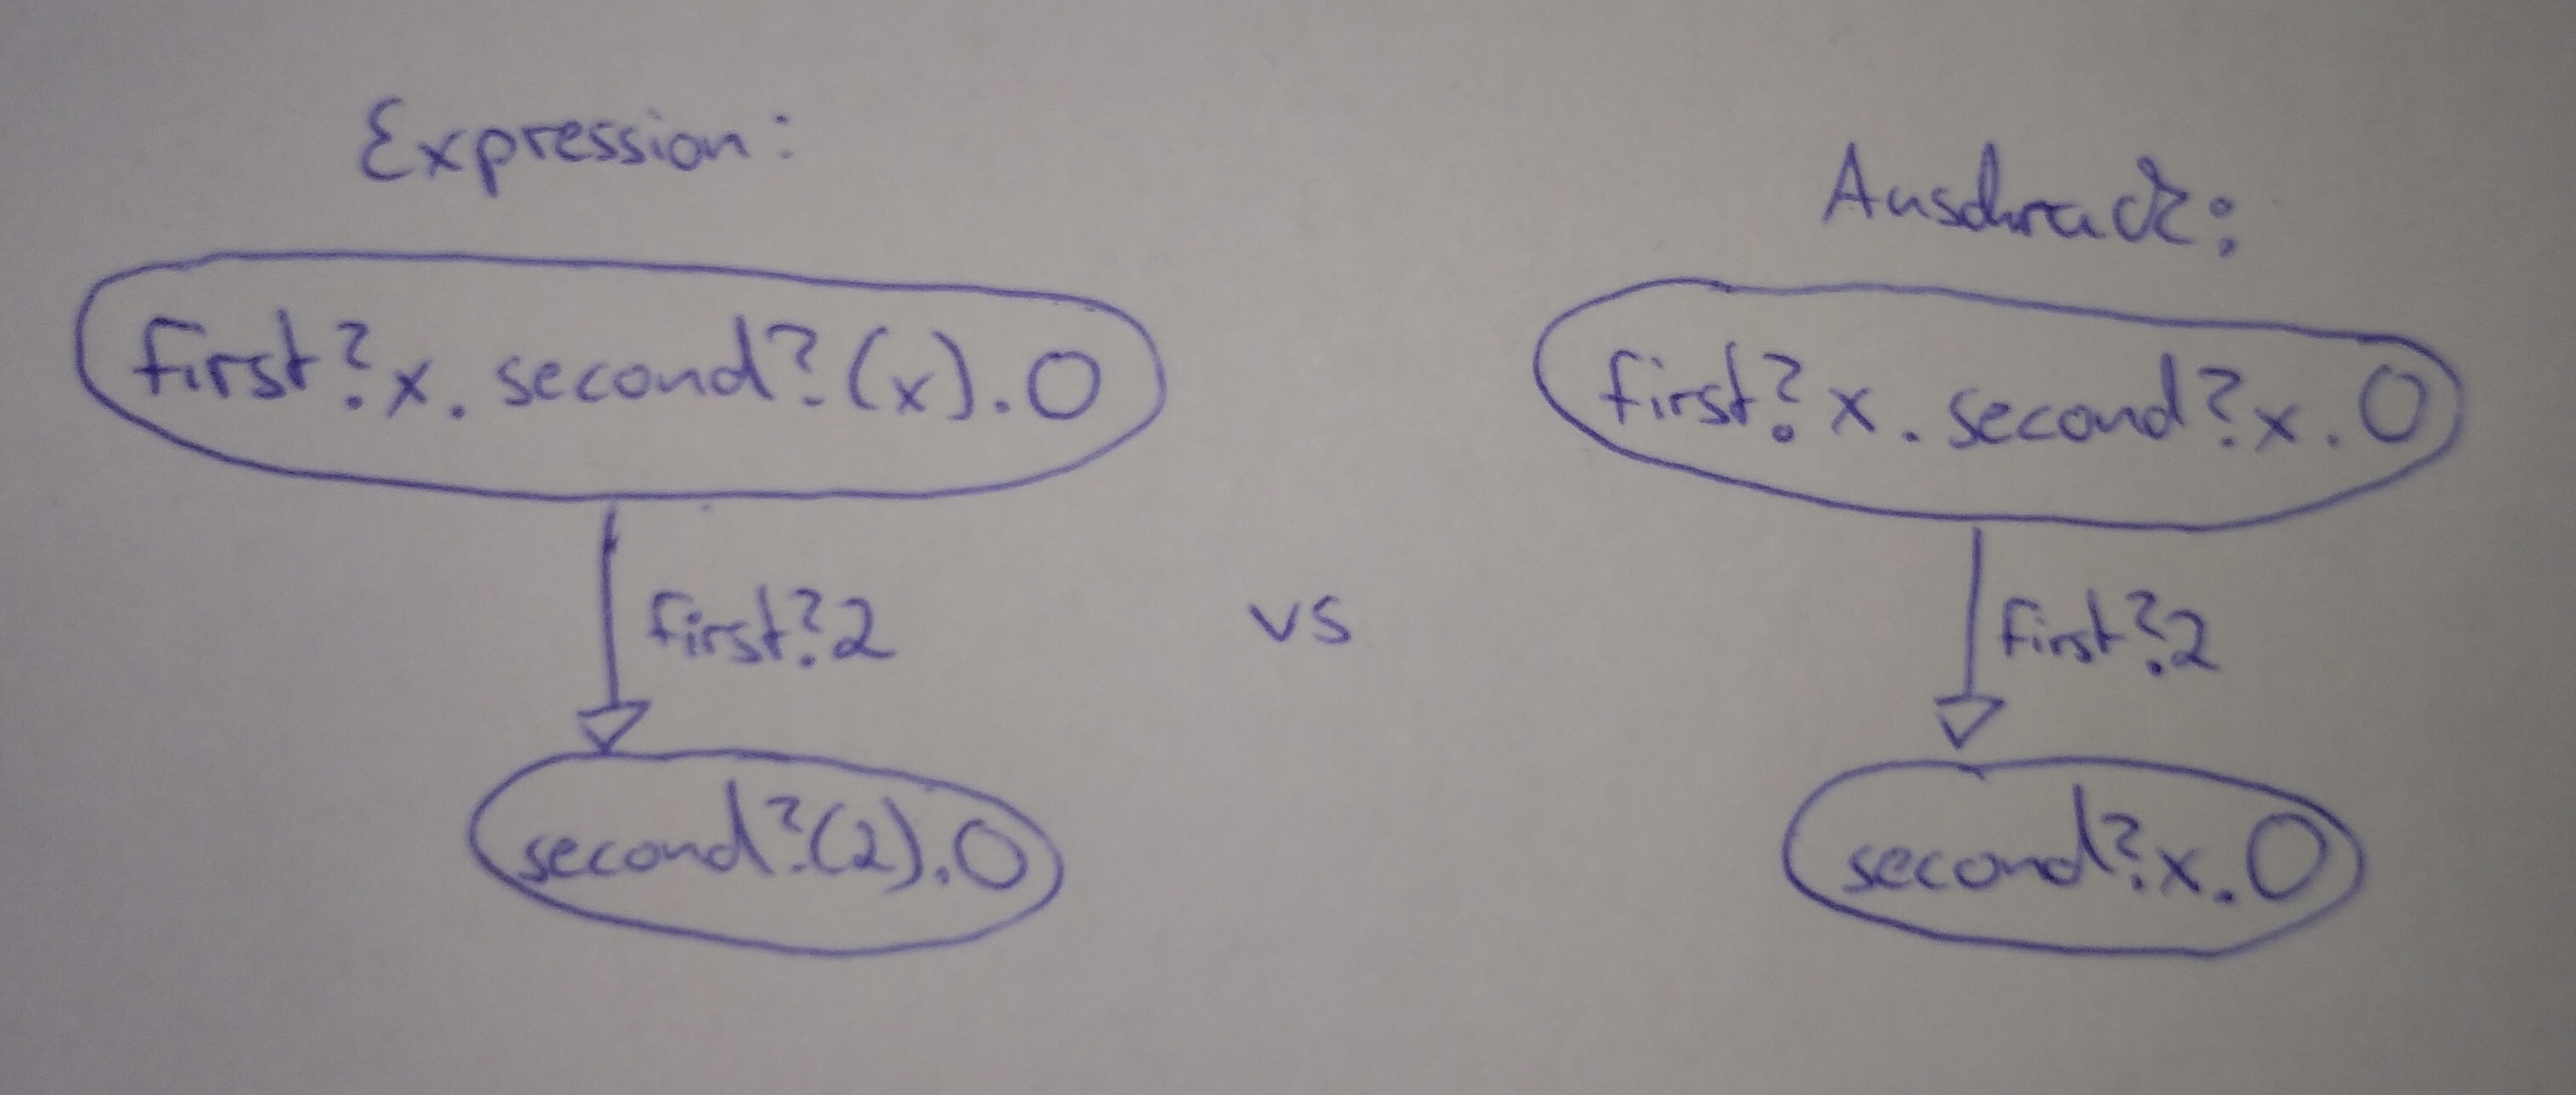 Expression:
first?x.second?(x).0
first?2
second?(2).0
vs
Ausdruck:
first?x.second?x.0
first?2
second?x.0